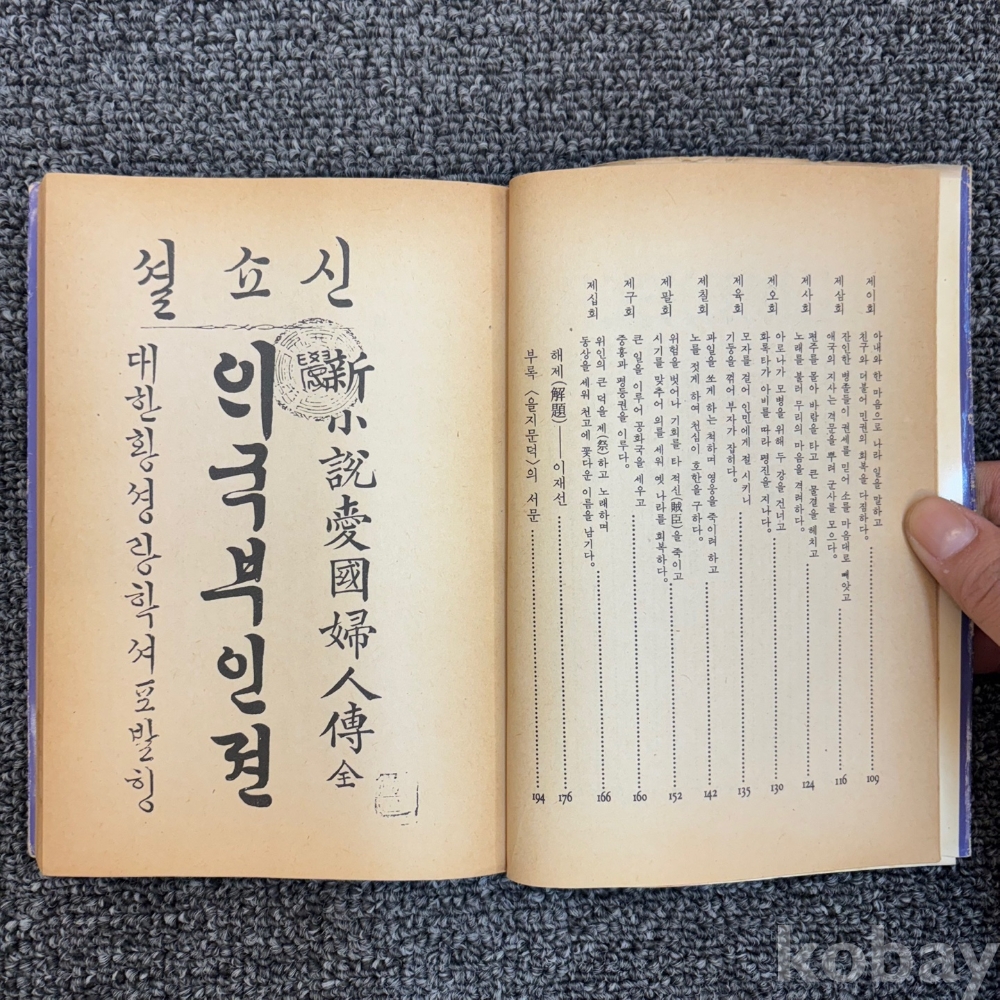 제이회 아내와 한 마음으로 나라 일을 말하고
친구와 더불어 민권의 회복을 다짐하다. 109
제삼회 잔인한 병졸들이 권세를 믿어 소를 마음대로 빼앗고
애국의 지사는 격문을 뿌려 군사를 모으다. 116
제사회 편주를 몰아 바람을 타고 큰 물결을 헤치고
노래를 불러 무리의 마음을 격려하다. 124
제오회 아로나가 모병을 위해 두 강을 건너고
화록타가 아비를 따라 평진을 지나다. 130
제육회 모자를 걸어 인민에게 절 시키니
기둥을 꺾어 부자가 잡히다. 135
제칠회 과일을 쏘게 하는 척하며 영웅을 죽이려 하고
노를 젓게 하여 천심이 호한을 구하다. 142
제팔회 위험을 벗어나 기회를 타 적신(賊臣)을 죽이고
시기를 맞추어 의를 세워 옛 나라를 회복하다. 152
제구회 큰 일을 이루어 공화국을 세우고
중흥과 평등권을 이루다. 160
제십회 위인의 큰 덕을 제(祭)하고 노래하며
동상을 세워 천고에 꽃다운 이름을 남기다. 166
해제(解題)——이재선 176
부록〈을지문덕〉의 서문 194
신쇼셜
新小說愛國婦人傳 全
ᄋᆡ국부인젼
대한황셩광학셔포발ᄒᆡᆼ
kobay